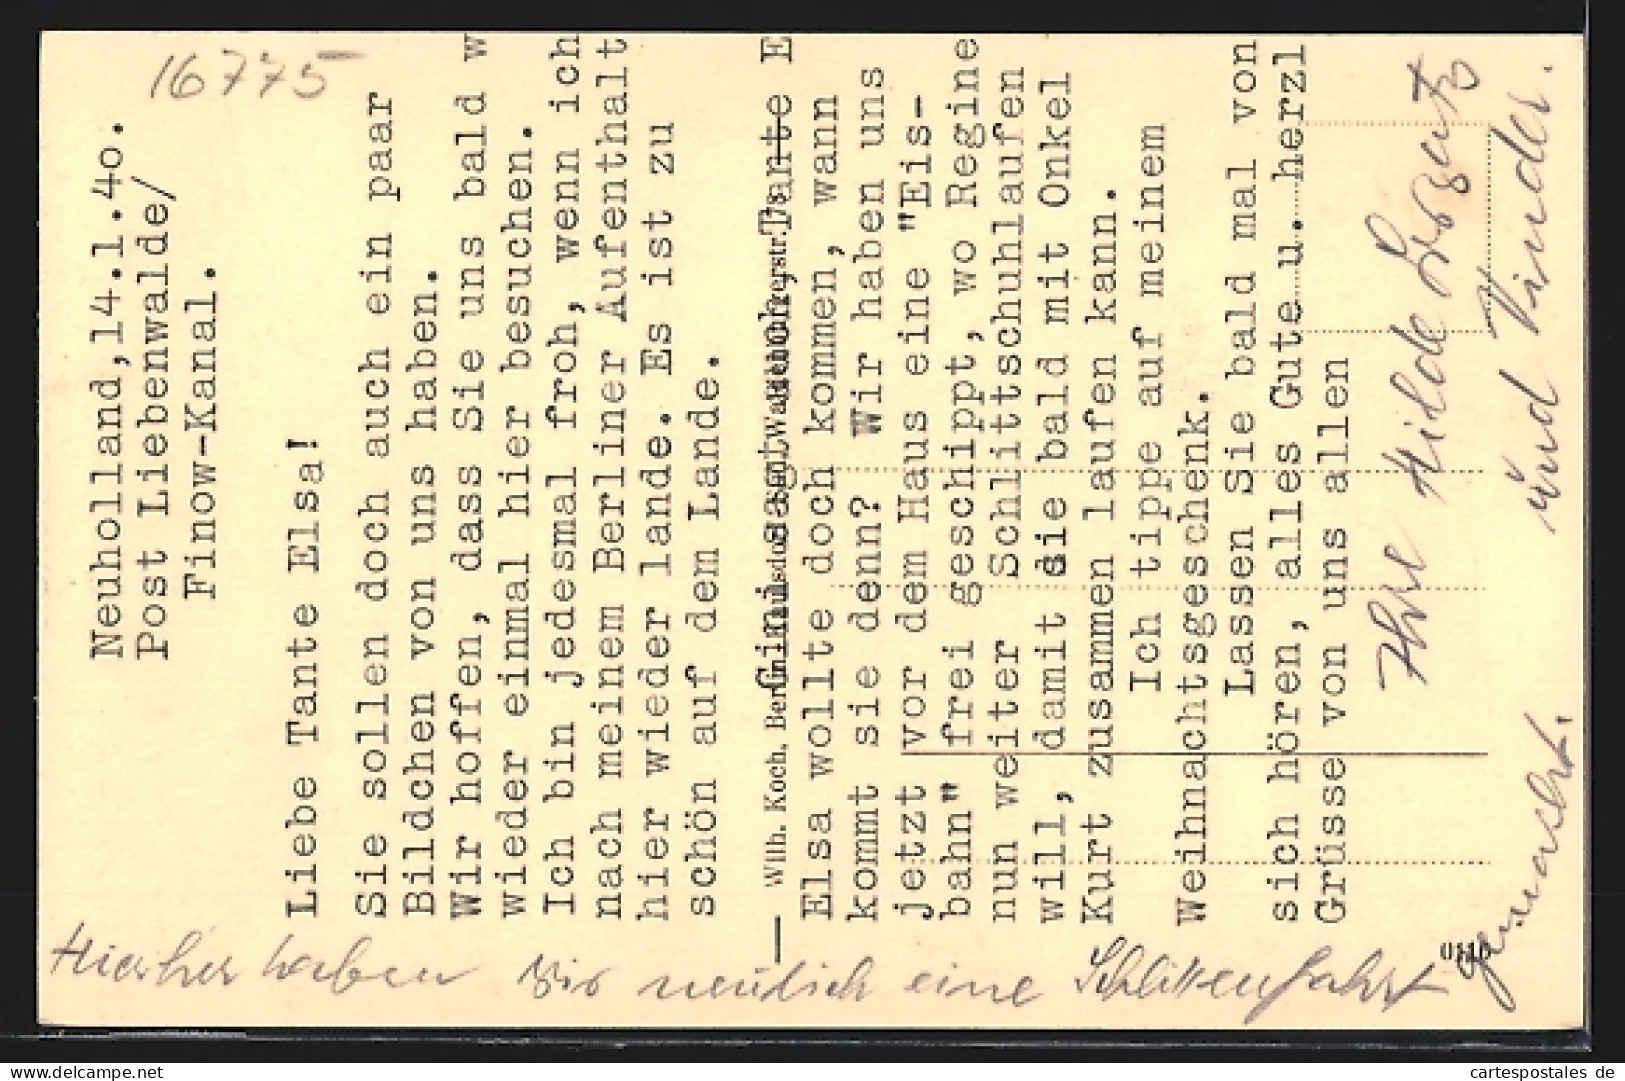 16775
Neuholland,14.1.4o.
Post Liebenwalde/
Finow-Kanal.
Liebe Tante Elsa!
Sie sollen doch auch ein paar
Bildchen von uns haben.
Wir hoffen, dass Sie uns bald w
wieder einmal hier besuchen.
Ich bin jedesmal froh, wenn ich
nach meinem Berliner Aufenthalt
hier wieder lande. Es ist zu
schön auf dem Lande.
Wilh. Koch. Berlin
sagt
Tante E
Elsa wollte doch kommen, wann
kommt sie denn? Wir haben uns
jetzt vor dem Haus eine "Eis-
bahn" frei geschippt, wo Regine
nun weiter Schlittschuhlaufen
will, damit sie bald mit Onkel
Kurt zusammen laufen kann.
Ich tippe auf meinem
Weihnachtsgeschenk.
Lassen Sie bald mal von
sich hören, alles Gute u. herzl
Grüsse von uns allen
Ihre Hilde
und Kinder.
Hierher haben wir neulich eine Schlittenfahrt
gemacht.
cartespostales.de
cartespostales de